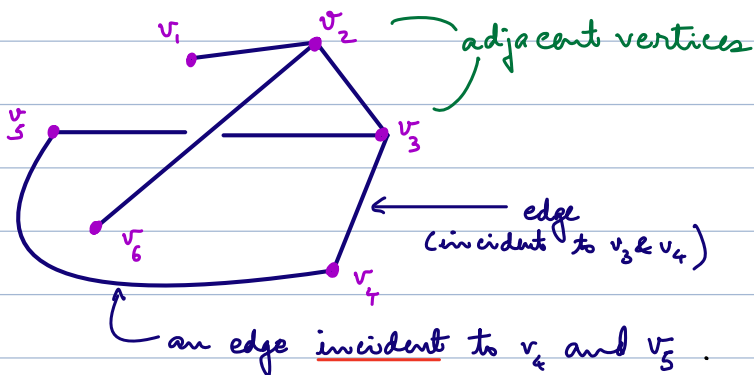 v₁
v₂
adjacent vertices
v₅
v₃
v₆
edge
(incident to v₃ & v₄)
v₄
an edge incident to v₄ and v₅.